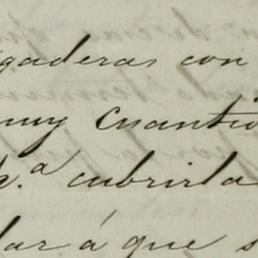 gaderas con
muy cuantio
p.ª cubrirla
lar á que s